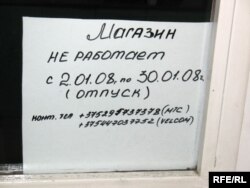 Магазин
НЕ РАБОТАЕТ
с 2.01.08г. по 30.01.08г
(ОТПУСК)
конт. тел +375295737378 (МТС)
+375447037752 (VELCOM)
RFE/RL